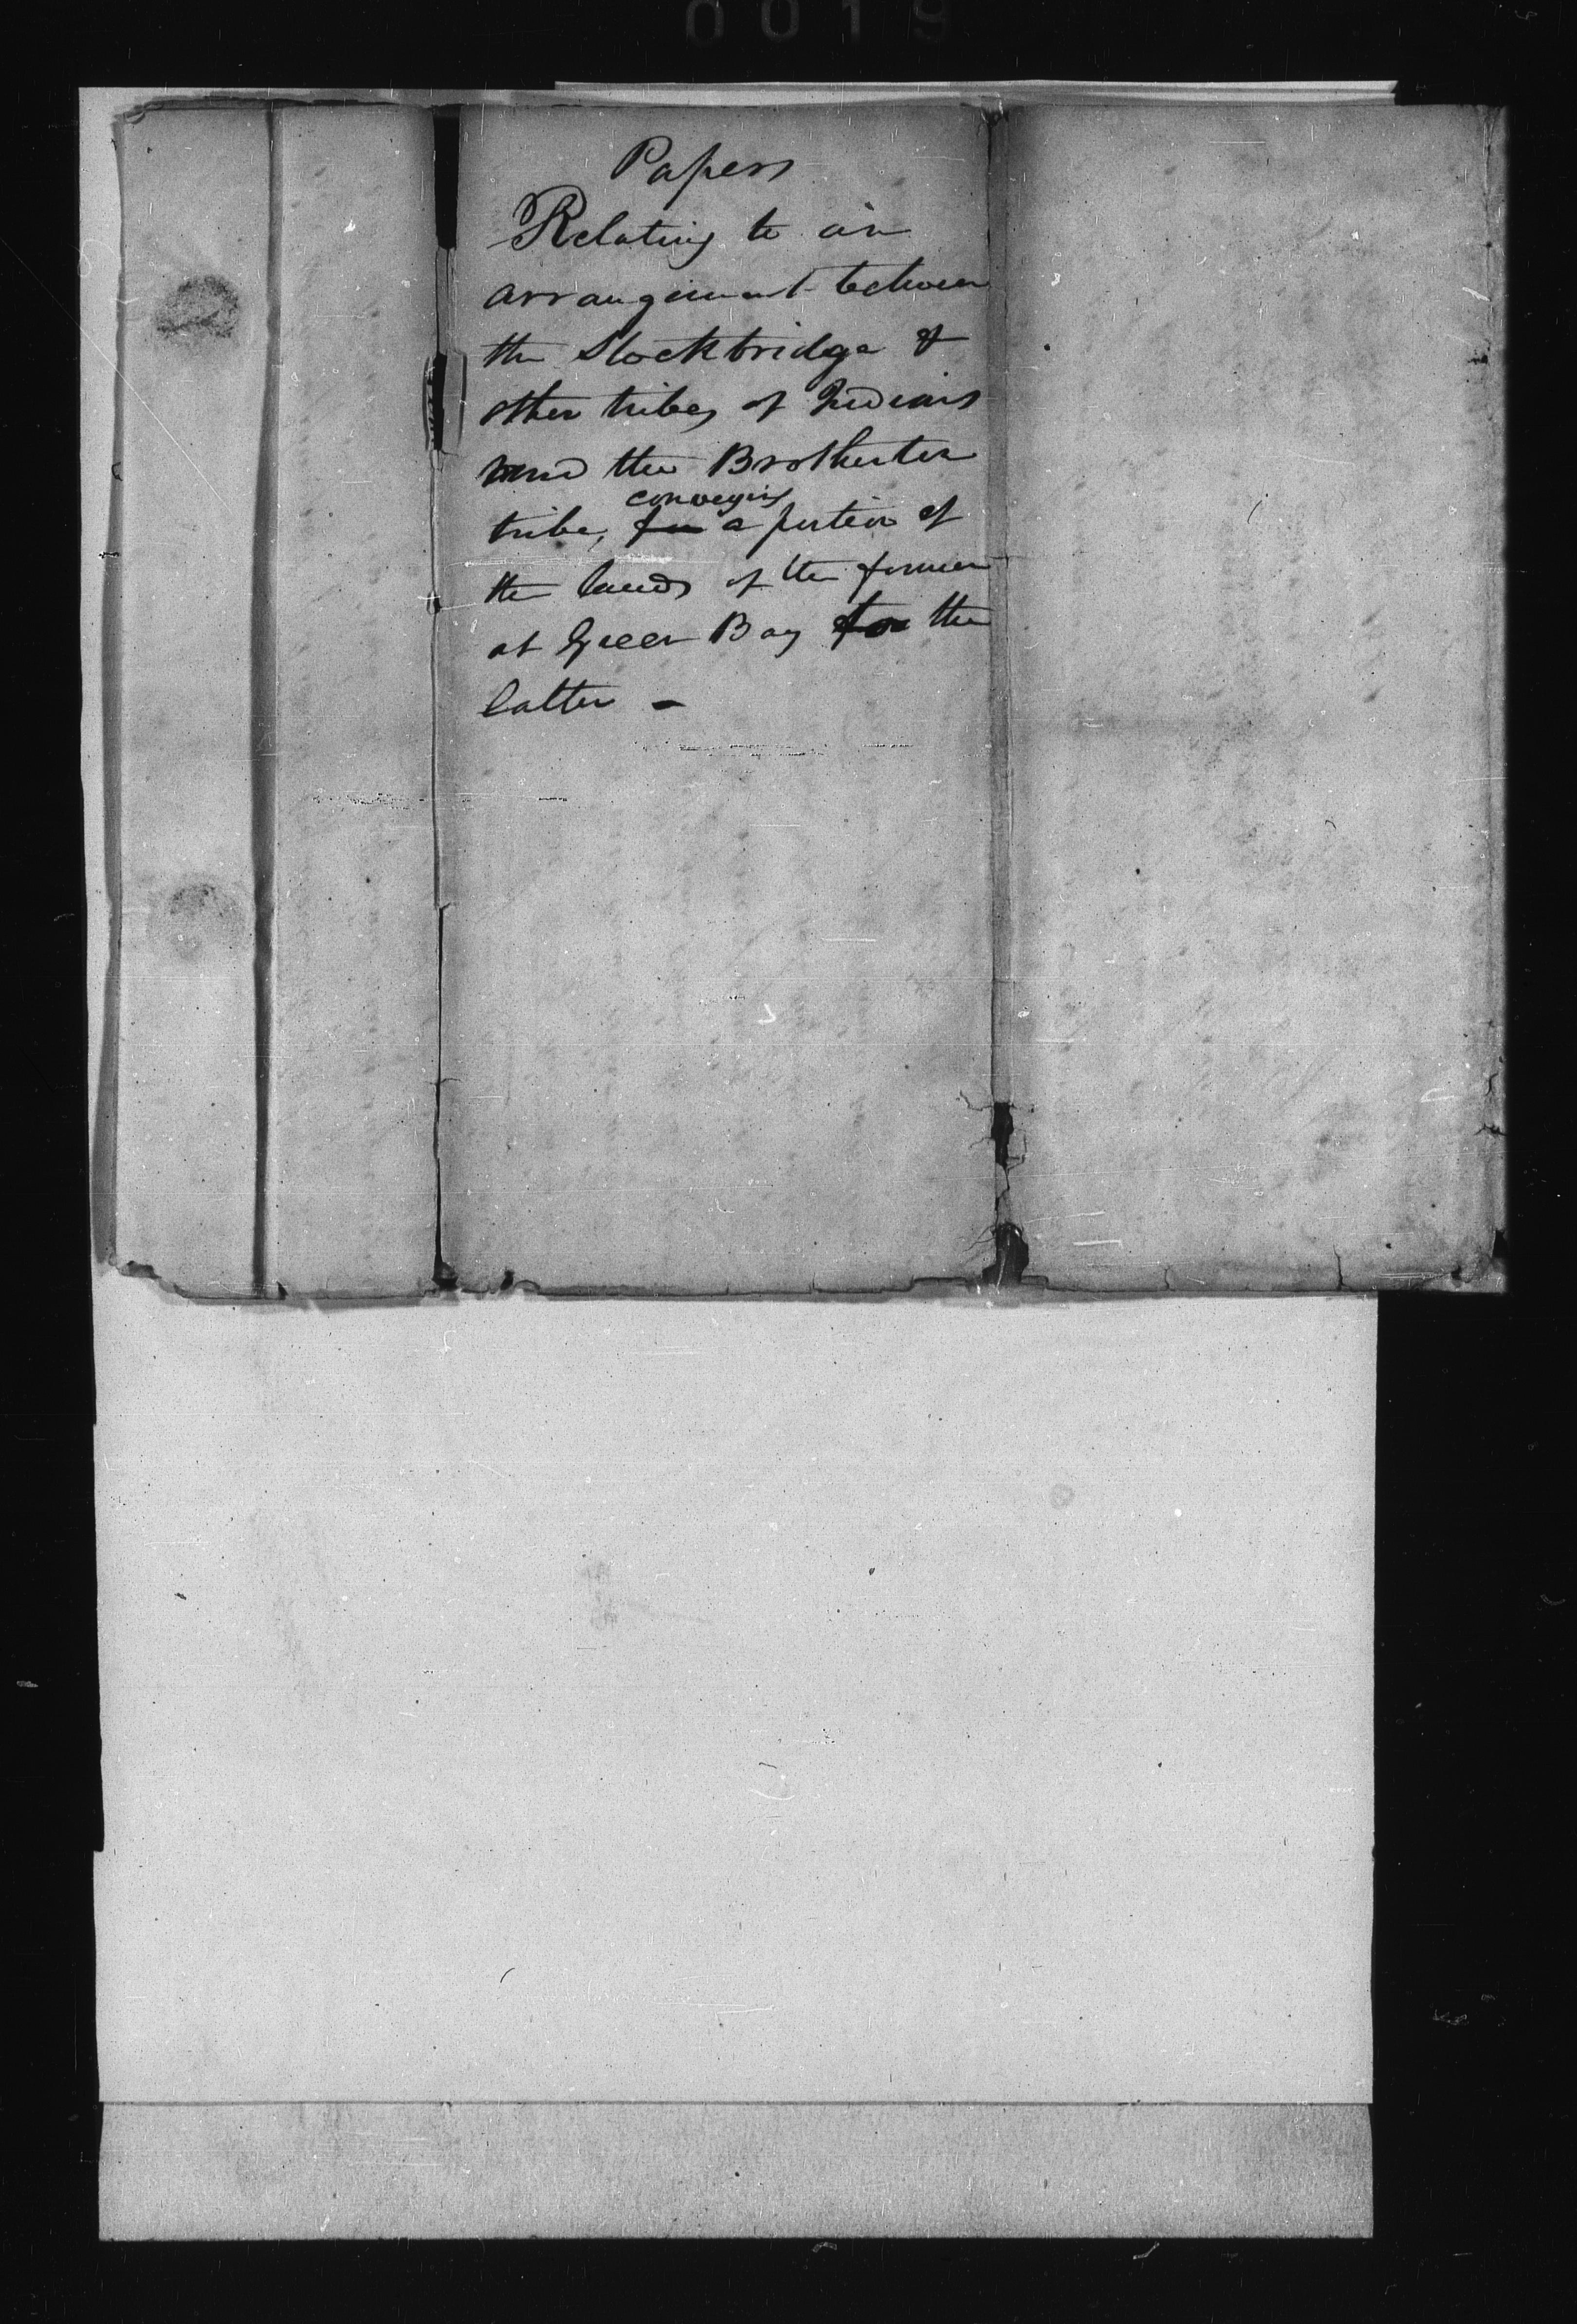 0019
Papers
Relating to an
arrangement between
the Stockbridge &
other tribes of Indians
and the Brotherton
conveying
tribe, for a portion of
the lands of the former
at Green Bay to the
latter -